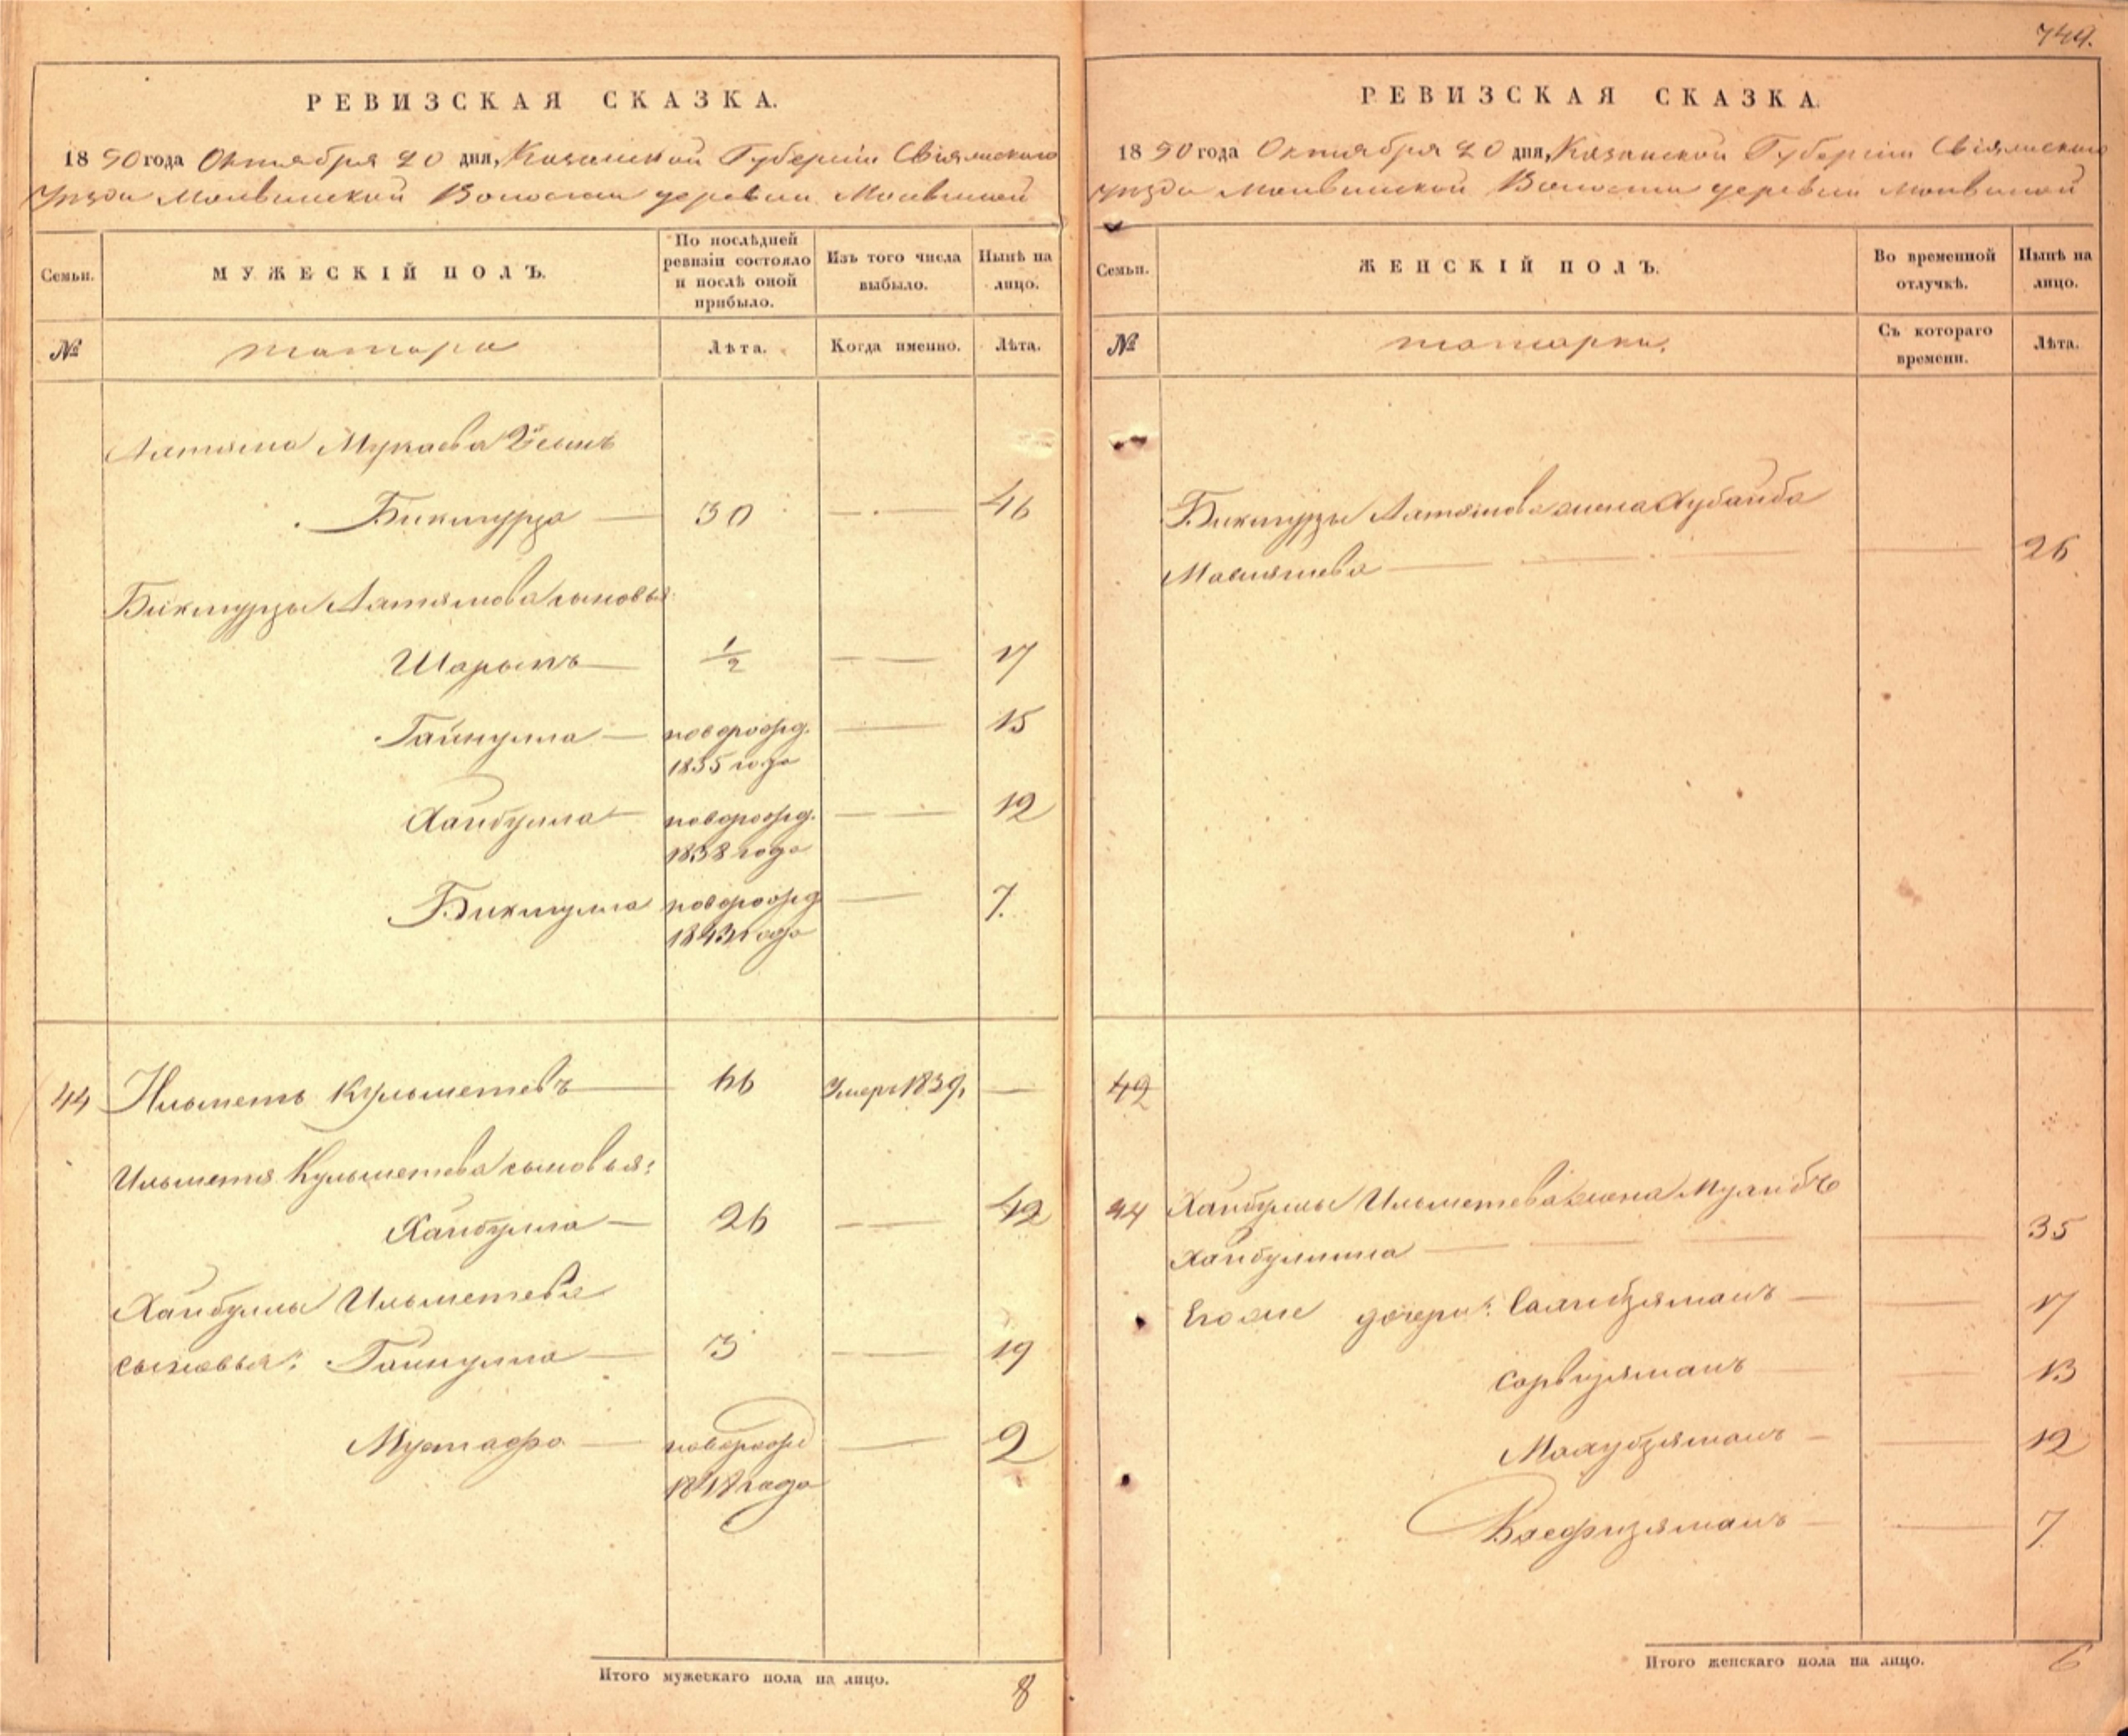 749.
РЕВИЗСКАЯ СКАЗКА.
1850 года Октября 20 дня, Казанской Губернiи Свiяжскаго
Уѣзда Молвинской Волости деревни Молвиной
Семьи.
МУЖЕСКІЙ ПОЛЪ.
По послѣдней ревизіи состояло и послѣ оной прибыло.
Изъ того числа выбыло.
Нынѣ на лицо.
№
татара
Лѣта.
Когда именно.
Лѣта.
Алтыша Мукаева
Бикмурза 30 — 46
Бикмурзы сыновья
Шарыпъ 1/2 — 17
Гайнулла новорожд. — 15
1835 года
Хайбулла новорожд. — 12
1838 года
Бикмулла новорожд — 7.
1843 года
44 Ильметь Кульметевъ 66 Умеръ 1839. —
Ильметя Кульметева сыновья:
Хайбулла 26 — 42
Хайбуллы Ильметева
сыновья: Гайнулла 3 — 19
Мустафа новорожд — 2
1848 года
Итого мужескаго пола на лицо. 8
РЕВИЗСКАЯ СКАЗКА.
1850 года Октября 20 дня, Казанской Губернiи Свiяжскаго
Уѣзда Молвинской Волости деревни Молвиной
Семьи.
ЖЕНСКІЙ ПОЛЪ.
Во временной отлучкѣ.
Нынѣ на лицо.
№
татарки.
Съ котораго времени.
Лѣта.
Бикмурзы жена Хубайба
26
42
44 Хайбуллы Ильметева жена
Хайбуллина — 35
Его же дочери: — 17
Сарвизяманъ — 13
Махубзяманъ — 12
7
Итого женскаго пола на лицо. 6